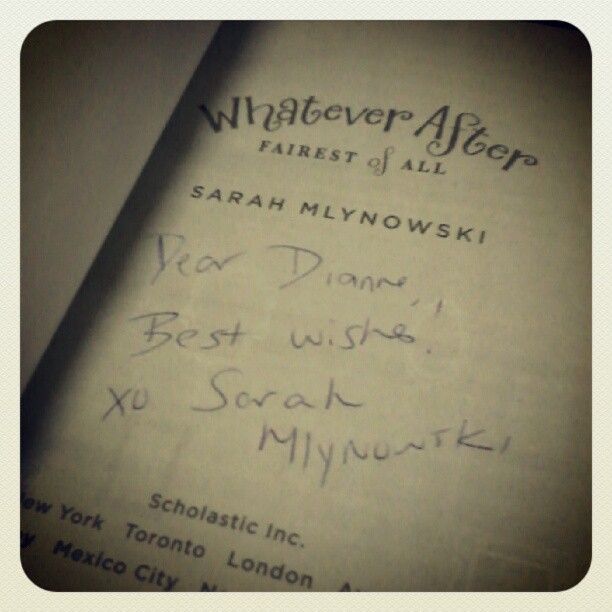 Whatever After
FAIREST of ALL
SARAH MLYNOWSKI
Dear Dianne,
Best wishes!
xo Sarah
Mlynowski
Scholastic Inc.
New York Toronto London
Mexico City